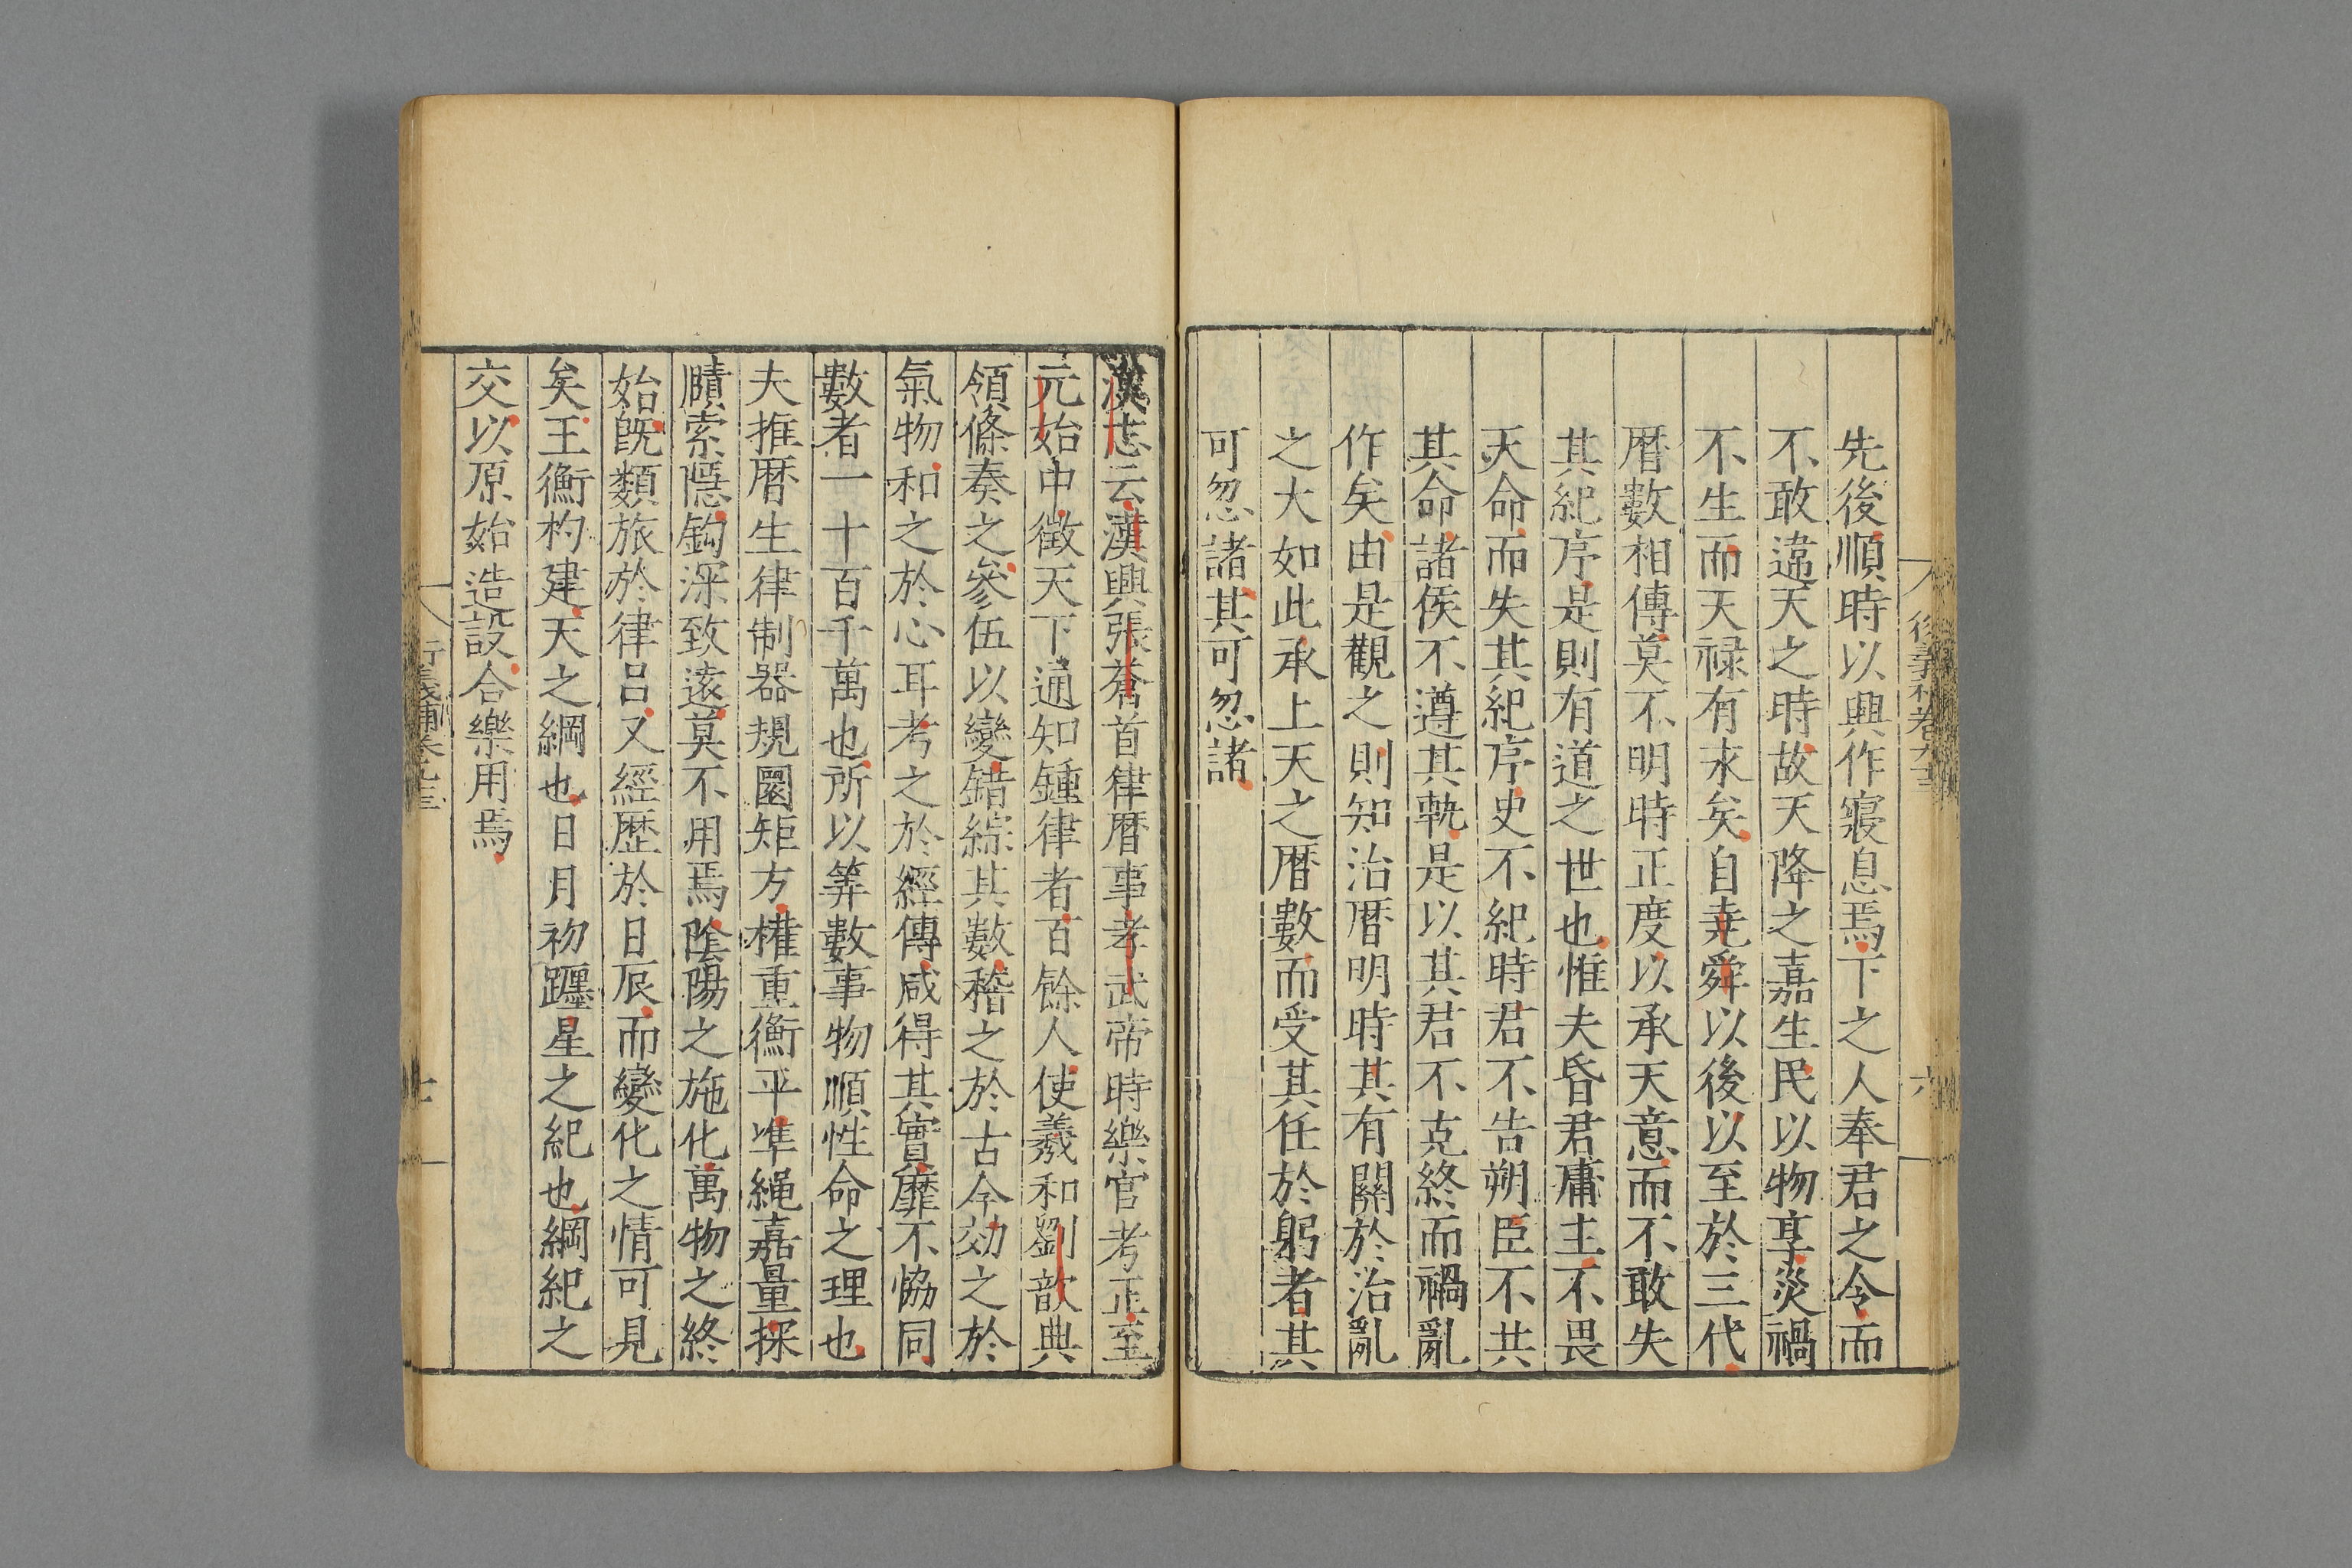 先後順時以興作寢息焉下之人奉君之令而
不敢違天之時故天降之嘉生民以物享災禍
不生而天祿有求矣自堯舜以後以至於三代
曆數相傳莫不明時正度以承天意而不敢失
其紀序是則有道之世也惟夫昏君庸主不畏
天命而失其紀序史不紀時君不告朔臣不共
其命諸侯不遵其軌是以其君不克終而禍亂
作矣由是觀之則知治曆明時其有關於治亂
之大如此承上天之曆數而受其任於躬者其
可忽諸其可忽諸
漢志云漢興張蒼首律曆事孝武帝時樂官考正至
元始中徵天下通知鍾律者百餘人使羲和劉歆典
領條奏之參伍以變錯綜其數稽之於古今効之於
氣物和之於心耳考之於經傳咸得其實靡不恊同
數者一十百千萬也所以筭數事物順性命之理也
夫推曆生律制器規圜矩方權重衡平準繩嘉量探
賾索隱鈎深致遠莫不用焉陰陽之施化萬物之終
始旣類旅於律呂又經歷於日辰而變化之情可見
矣玉衡杓建天之綱也日月初躔星之紀也綱紀之
交以原始造設合樂用焉